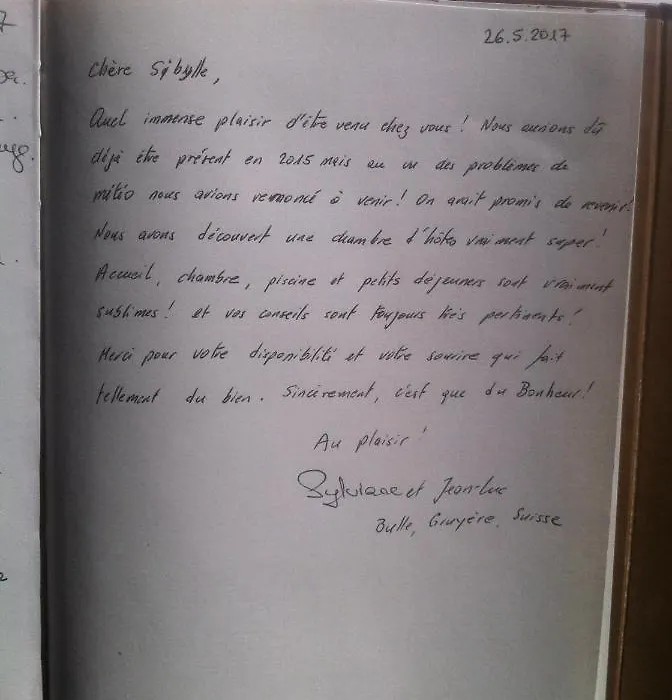 26.5.2017
Chère Sibylle,
Quel immense plaisir d'être venu chez vous ! Nous aurions dû
déjà être présent en 2015 mais au vu des problèmes de
météo nous avions renoncé à venir ! On avait promis de revenir!
Nous avons découvert une chambre d'hôtes vraiment super !
Accueil, chambre, piscine et petits déjeuners sont vraiment
sublimes ! et vos conseils sont toujours très pertinents !
Merci pour votre disponibilité et votre sourire qui fait
tellement du bien. Sincèrement, c'est que du Bonheur !
Au plaisir !
Sylviane et Jean-Luc
Bulle, Gruyère, Suisse